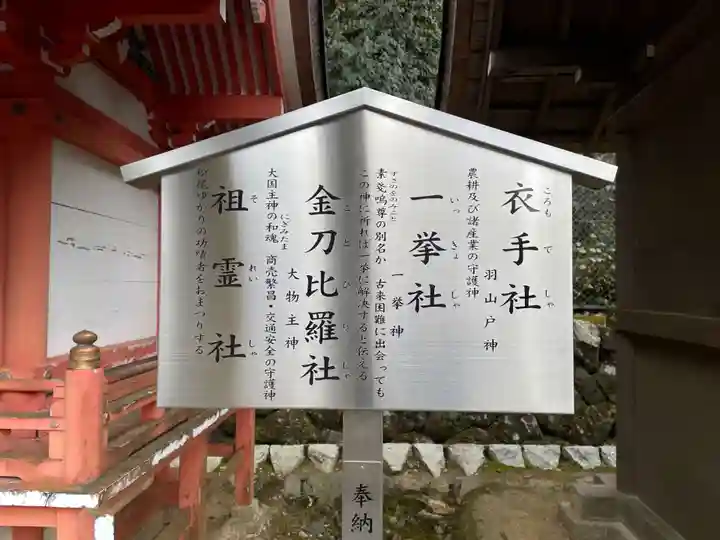 衣手社
ころもでしゃ
羽山戸神
農耕及び諸産業の守護神
一挙社
いっきょしゃ
一挙神
素戔嗚尊の別名か 古来困難に出会っても
すさのをのみこと
この神に祈れば一挙に解決すると伝える
金刀比羅社
ことひらしゃ
大物主神
大国主神の和魂 商売繁昌・交通安全の守護神
にぎみたま
祖霊社
それいしゃ
松尾ゆかりの功績者をおまつりする
奉納